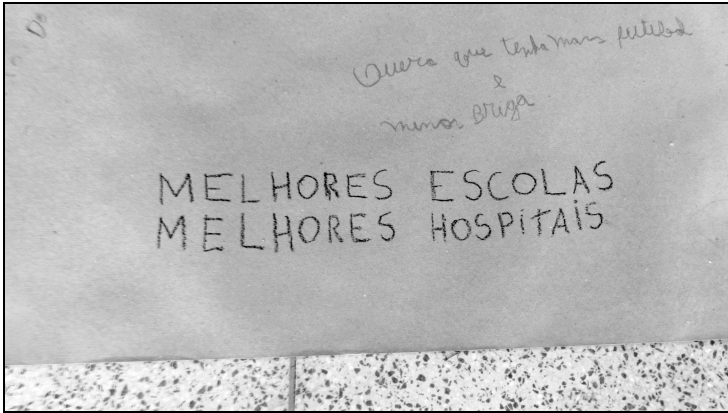 Quero que tenha mais futebol
e
menos Briga
MELHORES ESCOLAS
MELHORES HOSPITAIS